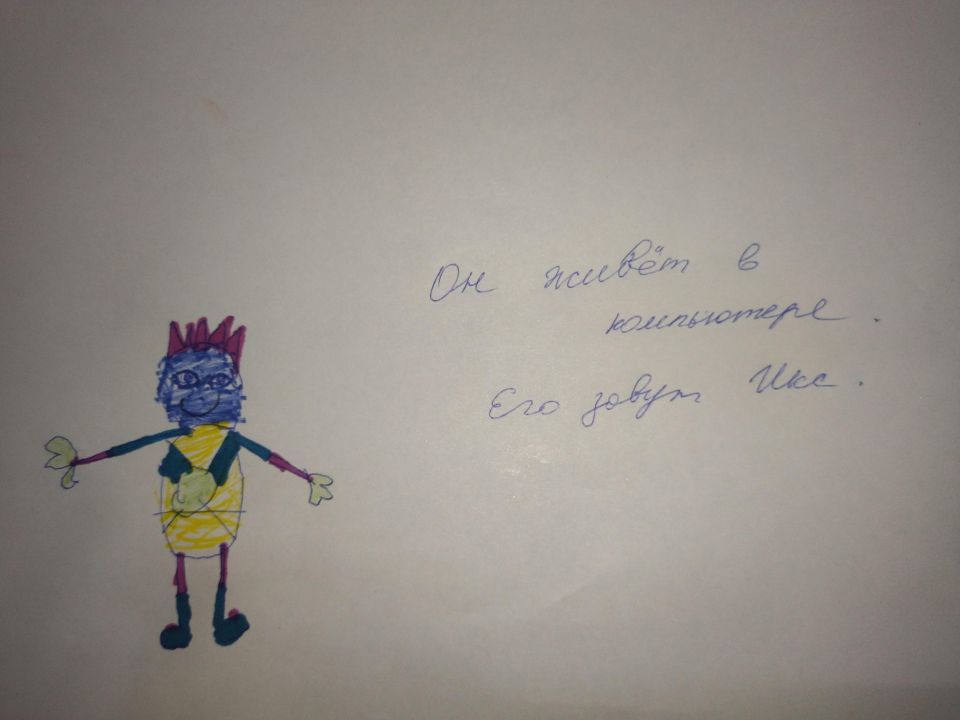 Он живёт в
компьютере.
Его зовут Икс.